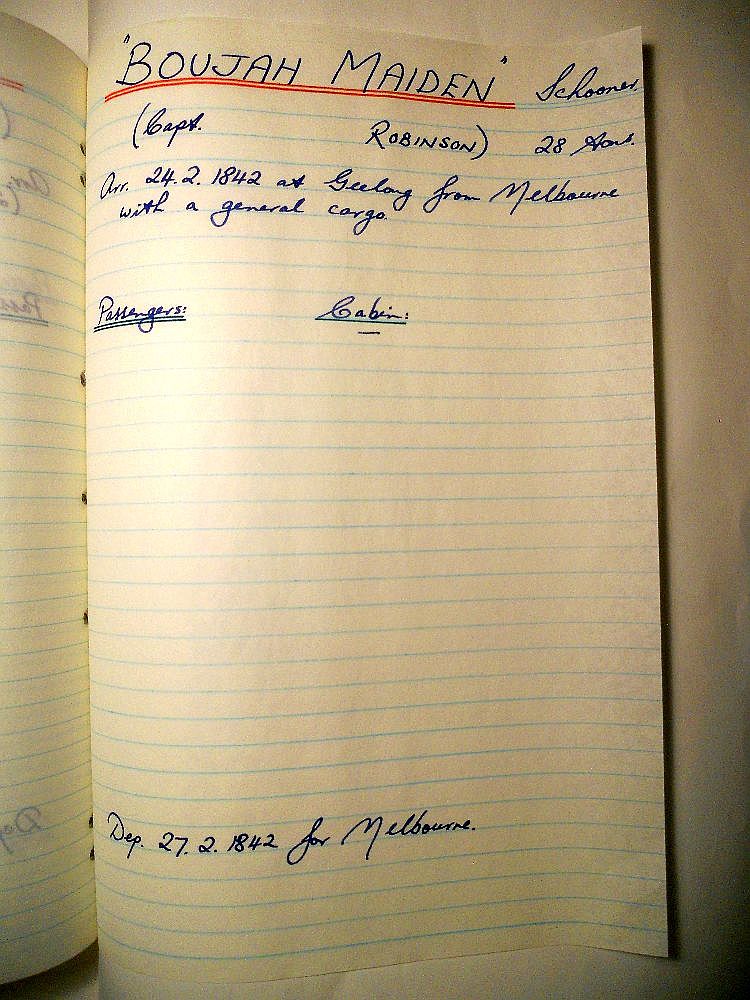 "BOUJAH MAIDEN" Schooner.
(Capt. ROBINSON) 28 tons.
Arr. 24.2.1842 at Geelong from Melbourne
with a general cargo.
Passengers: Cabin:
Dep. 27.2.1842 for Melbourne.